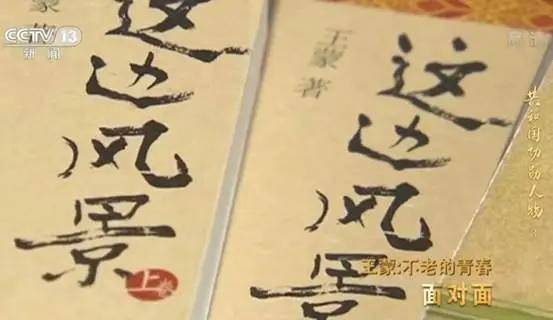 CCTV 13
新闻
高清
蒙
这边风景
上卷
王蒙 著
这边风景
共和国功勋人物 3
王蒙:不老的青春
面对面